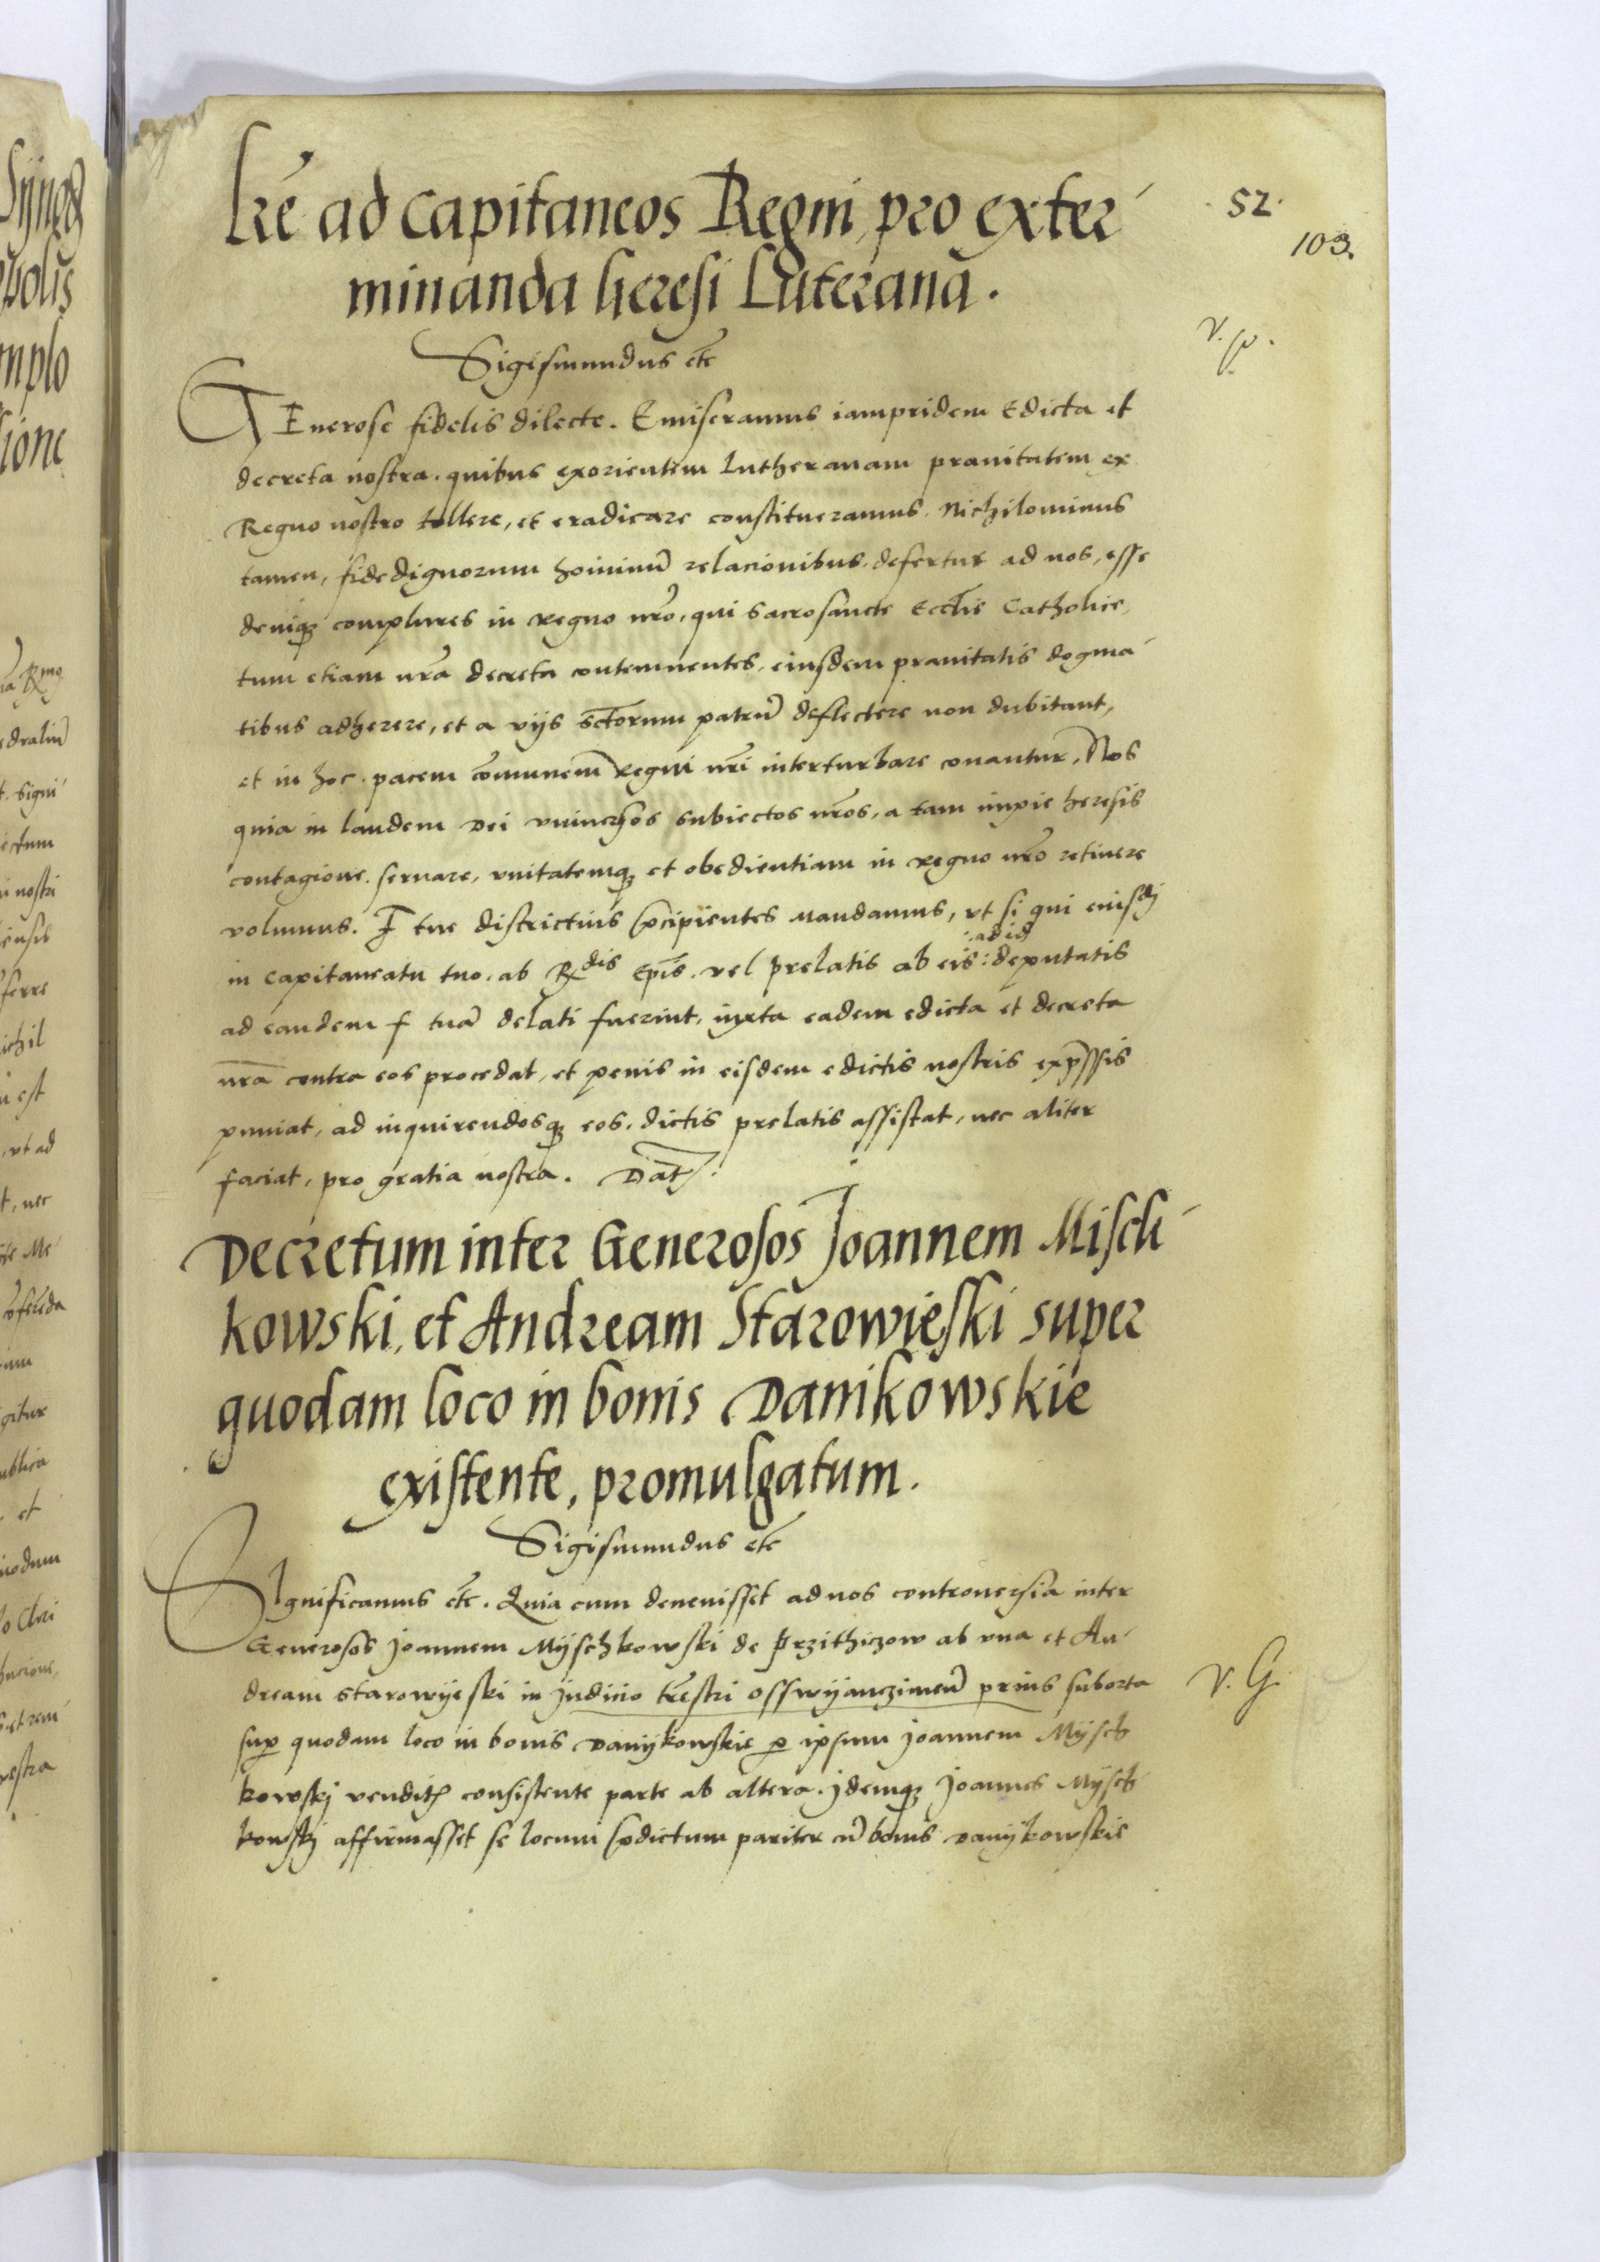 52.
103.
Lrē ad Capitaneos Regni, pro exter-
minanda heresi Luterana.
Sigismundus etc
GEnerose fidelis dilecte. Emiseramus iampridem Edicta et
decreta nostra. quibus exorientem Lutheranam prauitatem ex
Regno nostro tollere, et eradicare constitueramus. Nichilominus
tamen, fidedignorum hominū relacionibus. defertur ad nos, esse
deniqꝫ complures in regno nrō, qui sacrosancte Ecclīe Catholice,
tum etiam nrā decreta contemnentes, eiusdem prauitatis dogma-
tibus adherere, et a vijs sctōrum patrū deflectere non dubitant,
et in hoc. pacem cōmunem Regni nrī interturbare conantur, Nos
quia in laudem Dei vniuersos subiectos nrōs, a tam impie heresis
contagione. seruare, vnitatemqꝫ et obedientiam in regno nrō retinere
volumus. F tue districtius p̄cipientes mandamus, vt si qui eiusdj
in Capitaneatu tuo. ab Rdis Epīs. vel prelatis ab eis: ad id deputatis
ad eandem f tuā delati fuerint, iuxta eadem edicta et decreta
nrā contra eos procedat, et penis in eisdem edictis nostris exp̄ssis
puniat, ad inquirendosqꝫ eos. dictis prelatis assistat, nec aliter
faciat, pro gratia nostra. Dat.
Decretum inter Generosos Joannem Misch-
kowski, et Andream Starowieski super
quodam loco in bonis Danikowskie
existente, promulgatum.
Sigismundus etc
SIgnificamus etc. Quia cum deuenisset ad nos controuersia inter
Generosos Joannem Myschkowski de Przithiczow ab vna et An-
dream Starowyeski in Judicio trēstri Osswyanczimen̄ prius suborta
V. G.
suꝑ quodam loco in bonis Danykowskie ꝑ ipsum Joannem Mysch
kowskj vendit consistente parte ab altera. Jdemqꝫ Joannes Mysch
kowskj affirmasset se locum p̄dictum pariter cū bonis Danykowskie